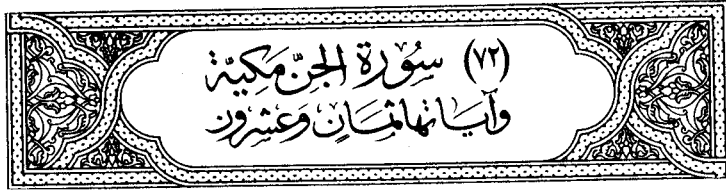 (٧٢) سُوْرَة الجِنّ مَكِيَّة
وَآيَاتُهَا ثَمَانٍ وَعِشْرُون